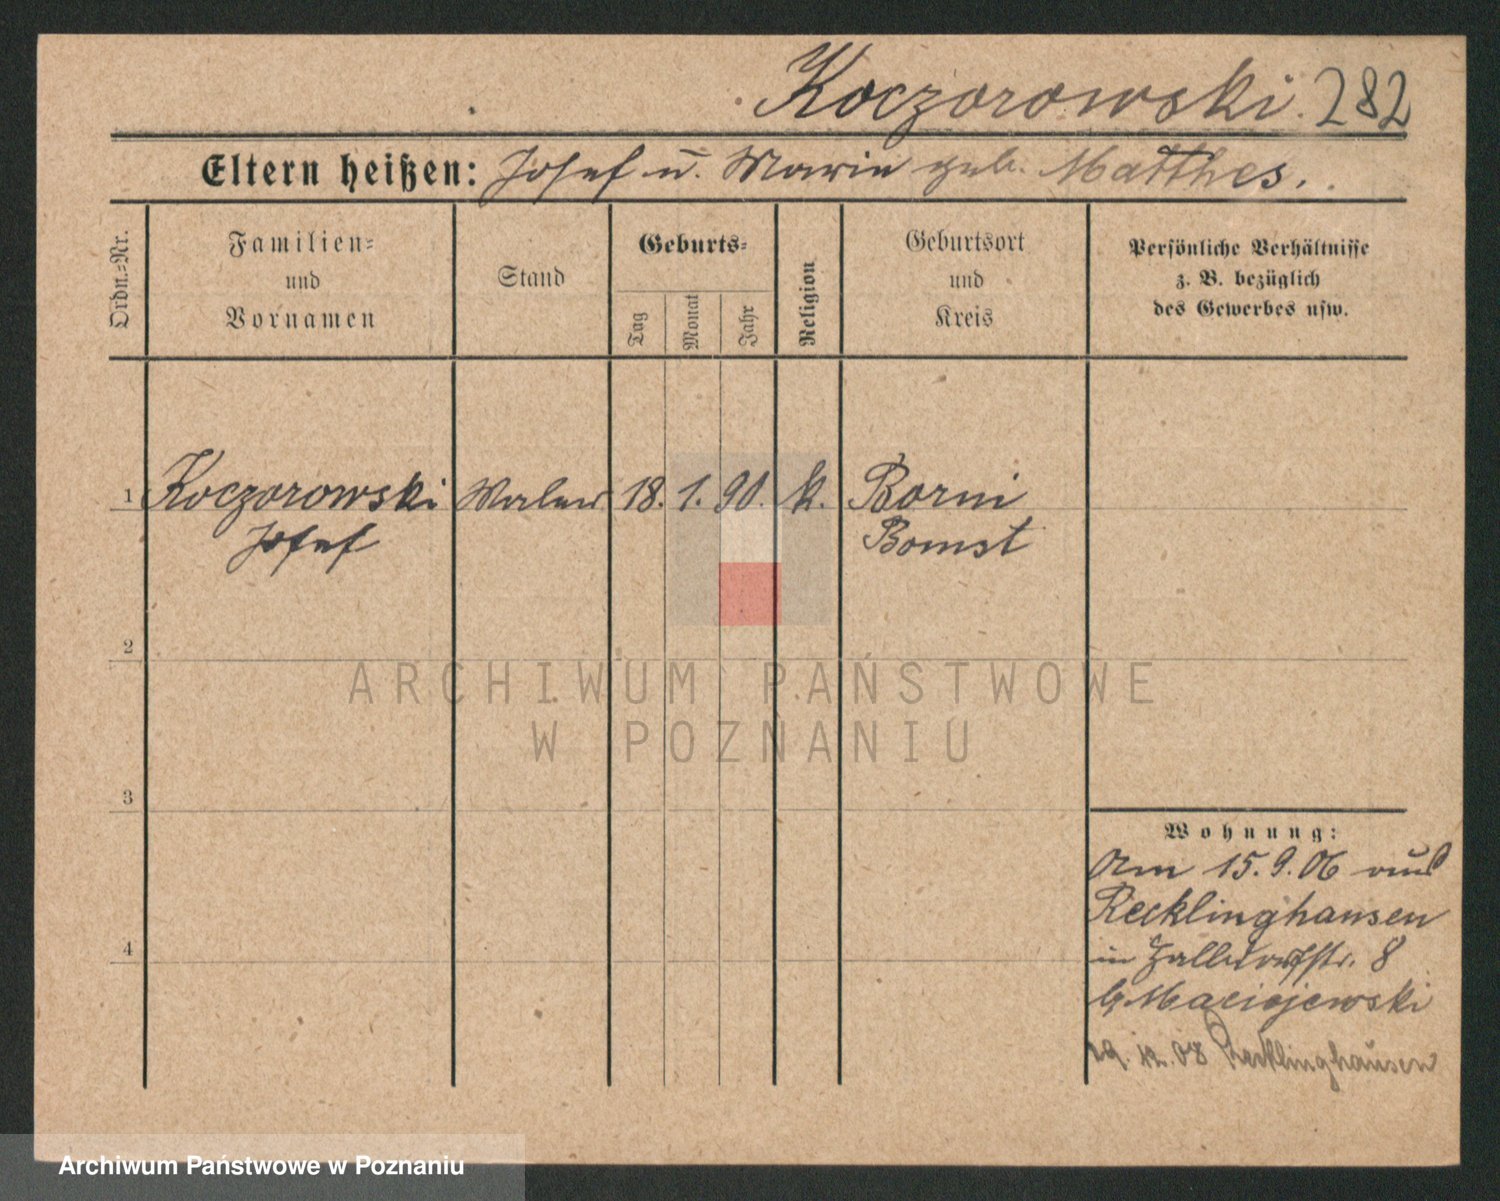 Koczorowski. 282
Eltern heißen: Josef u. Marie geb. Matthes.
Ordn.-Nr.
Familien-
und
Vornamen
Stand
Geburts-
Tag
Monat
Jahr
Religion
Geburtsort
und
Kreis
Persönliche Verhältnisse
z. B. bezüglich
des Gewerbes usw.
1 Koczorowski Maler 18. 1. 90. k. Borui
Josef Bomst
2
ARCHIWUM PAŃSTWOWE
W POZNANIU
3
Wohnung:
Am 15.9.06 aus
Recklinghausen
in 8
b/Maciejewski
4
19.12.08 Recklinghausen
Archiwum Państwowe w Poznaniu